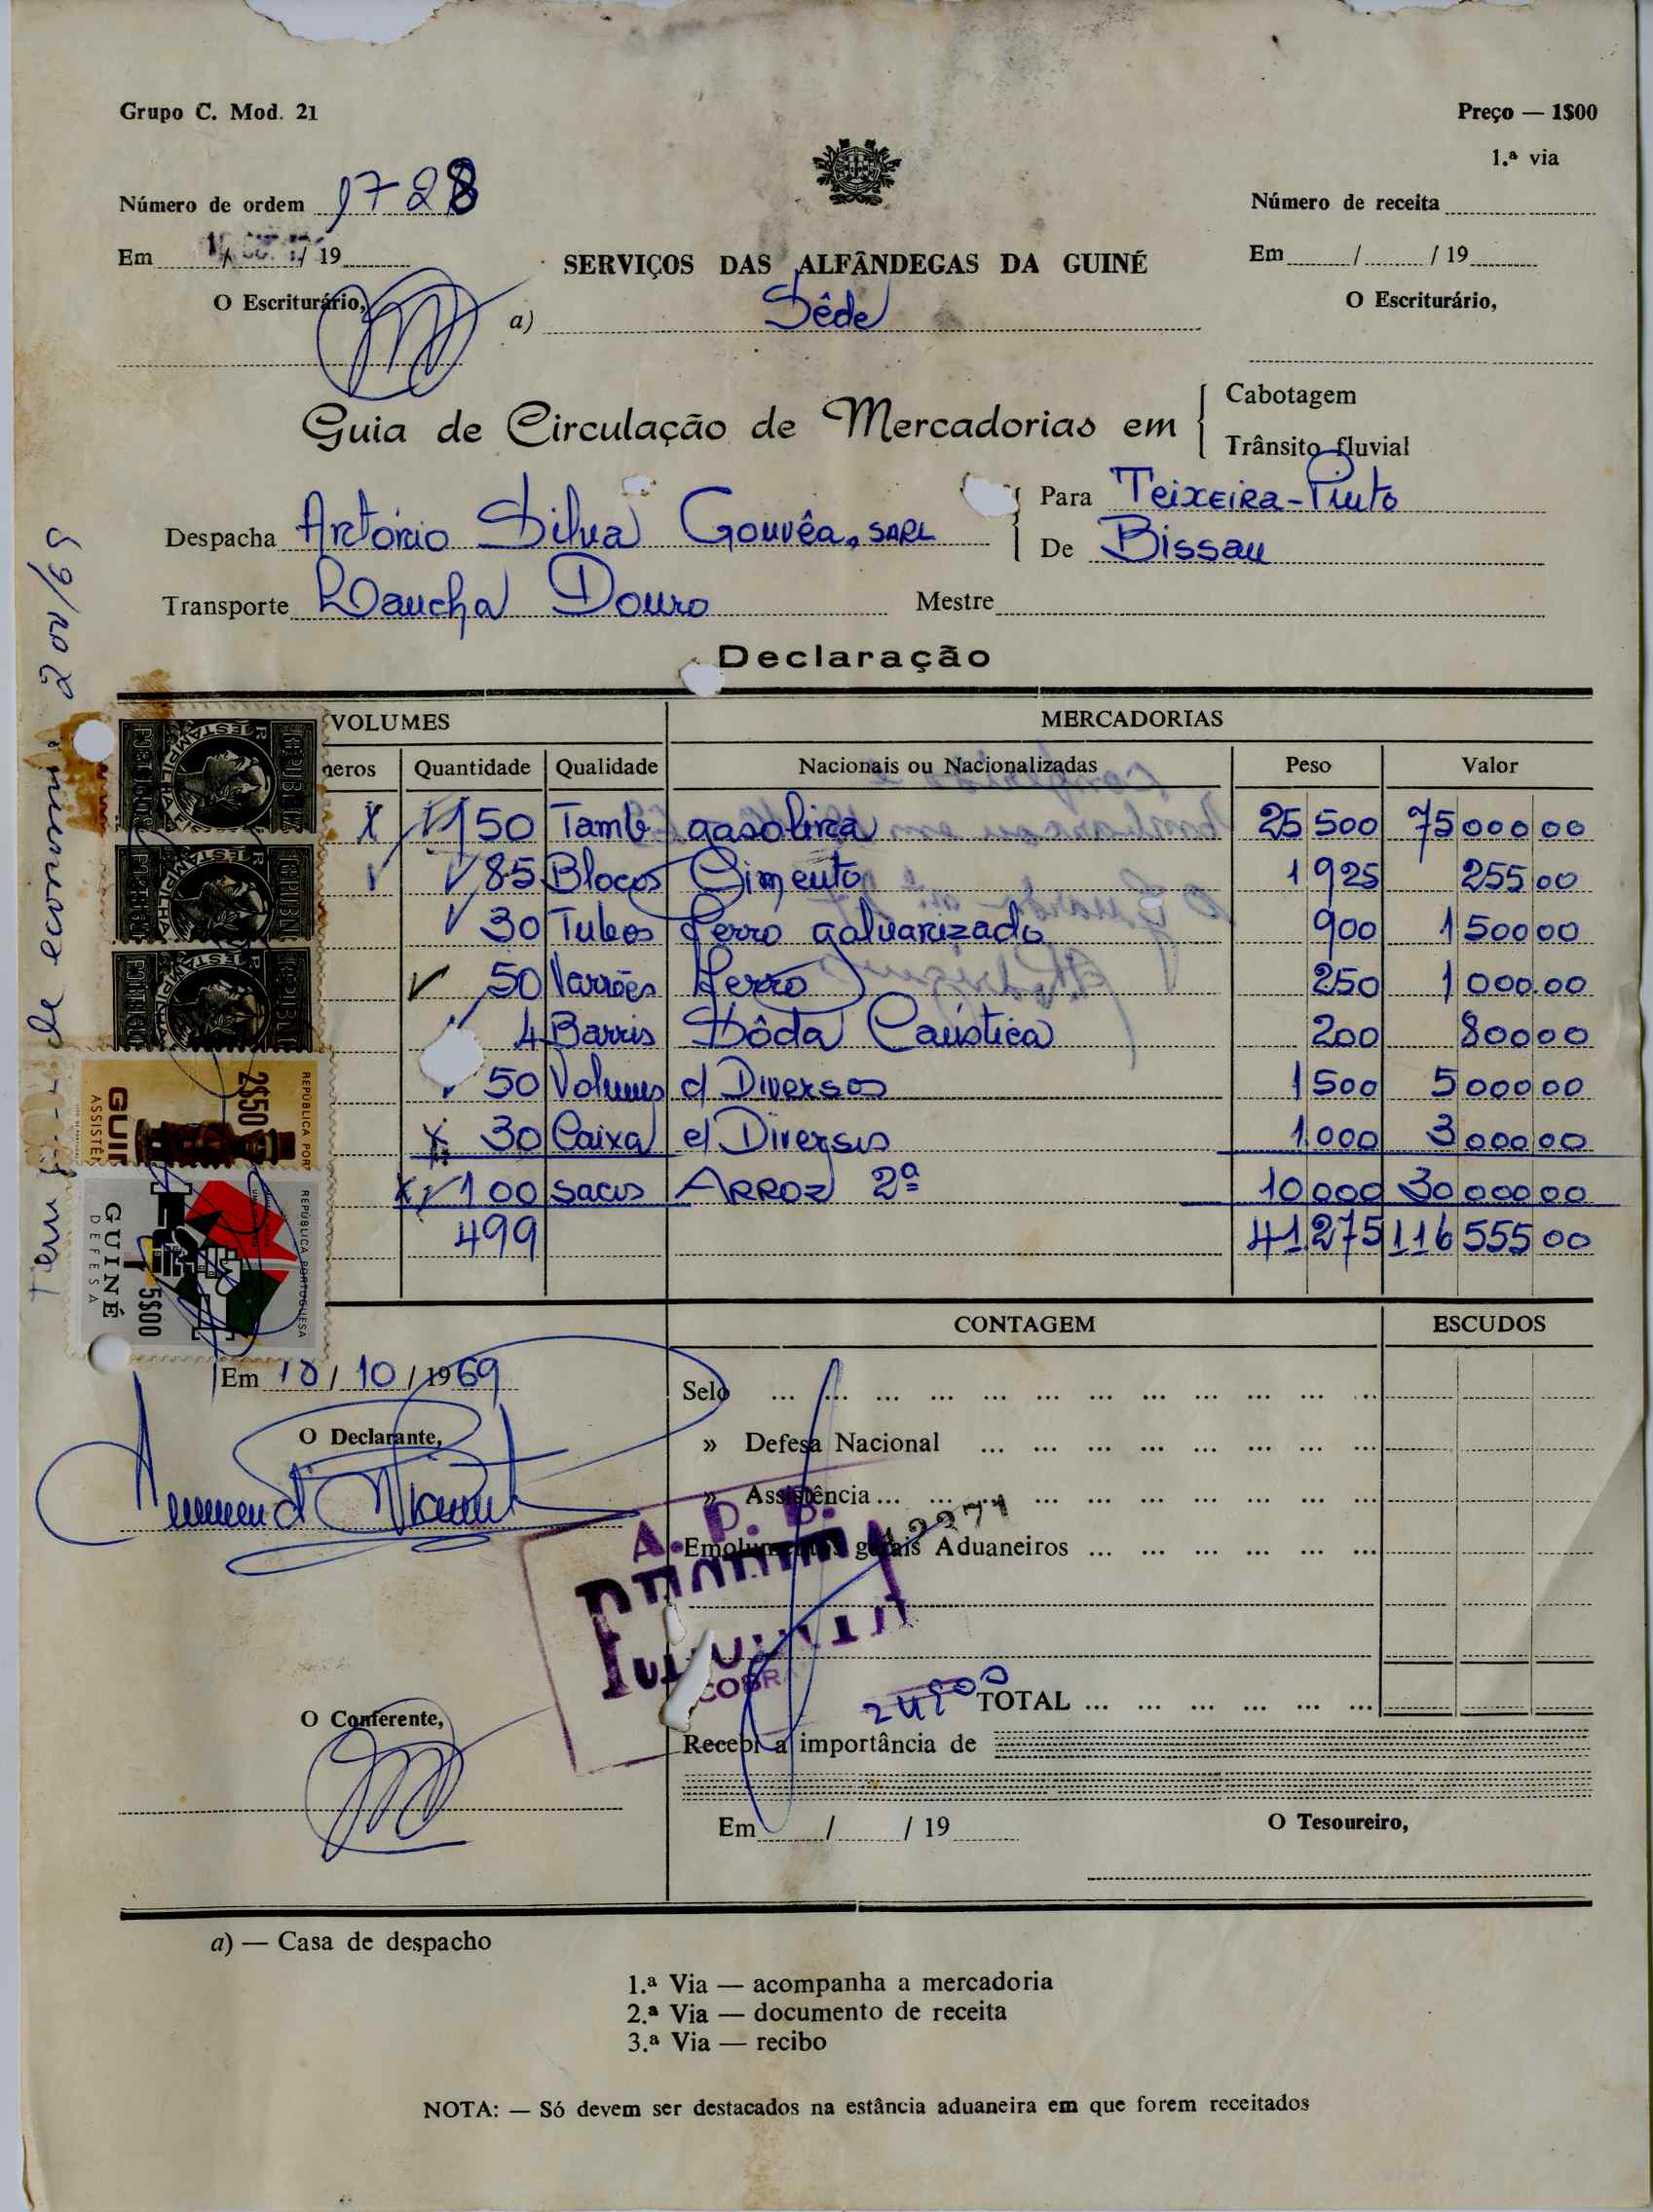 Grupo C. Mod. 21
Preço — 1$00
1.ª via
Número de ordem 1728
Número de receita
Em / / 19
Em / / 19
SERVIÇOS DAS ALFÂNDEGAS DA GUINÉ
O Escriturário,
O Escriturário,
a) Séde
Guia de Circulação de Mercadorias em
Cabotagem
Trânsito fluvial
Despacha António Silva Gouvêa, SARL
Para Teixeira-Pinto
De Bissau
Transporte Lancha Douro Mestre
Declaração
VOLUMES MERCADORIAS
neros Quantidade Qualidade Nacionais ou Nacionalizadas Peso Valor
150 Tamb gasolina 25 500 75 000 00
85 Blocos Cimento 1 925 255 00
30 Tubos ferro galvanizado 900 1 500 00
50 Varrões Ferro 250 1 000.00
4 Barris Sôda Caústica 200 800 00
50 Volumes c/ Diversos 1 500 5 000 00
30 Caixa c/ Diversos 1.000 3 000 00
100 sacos ARROZ 2ª 10 000 30 000 00
499 41.275 116 555 00
REPÚBLICA PORTUGUESA
2$50
GUINÉ
DEFESA
5$00
de economia 2001/69
CONTAGEM ESCUDOS
Em 10 / 10 / 1969
Selo
O Declarante,
» Defesa Nacional
» Assistência
Emolumentos gerais Aduaneiros
A. P. B.
COBR
24$00
TOTAL
O Conferente,
Recebi a importância de
Em / / 19
O Tesoureiro,
a) — Casa de despacho
1.ª Via — acompanha a mercadoria
2.ª Via — documento de receita
3.ª Via — recibo
NOTA: — Só devem ser destacados na estância aduaneira em que forem receitados